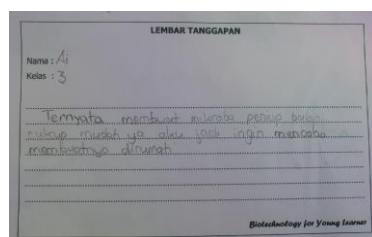 LEMBAR TANGGAPAN
Nama : Ai
Kelas : 3
Ternyata membuat mikroba peniup balon
cukup mudah ya aku jadi ingin mencoba
membuatnya dirumah
Biotechnology for Young Learner